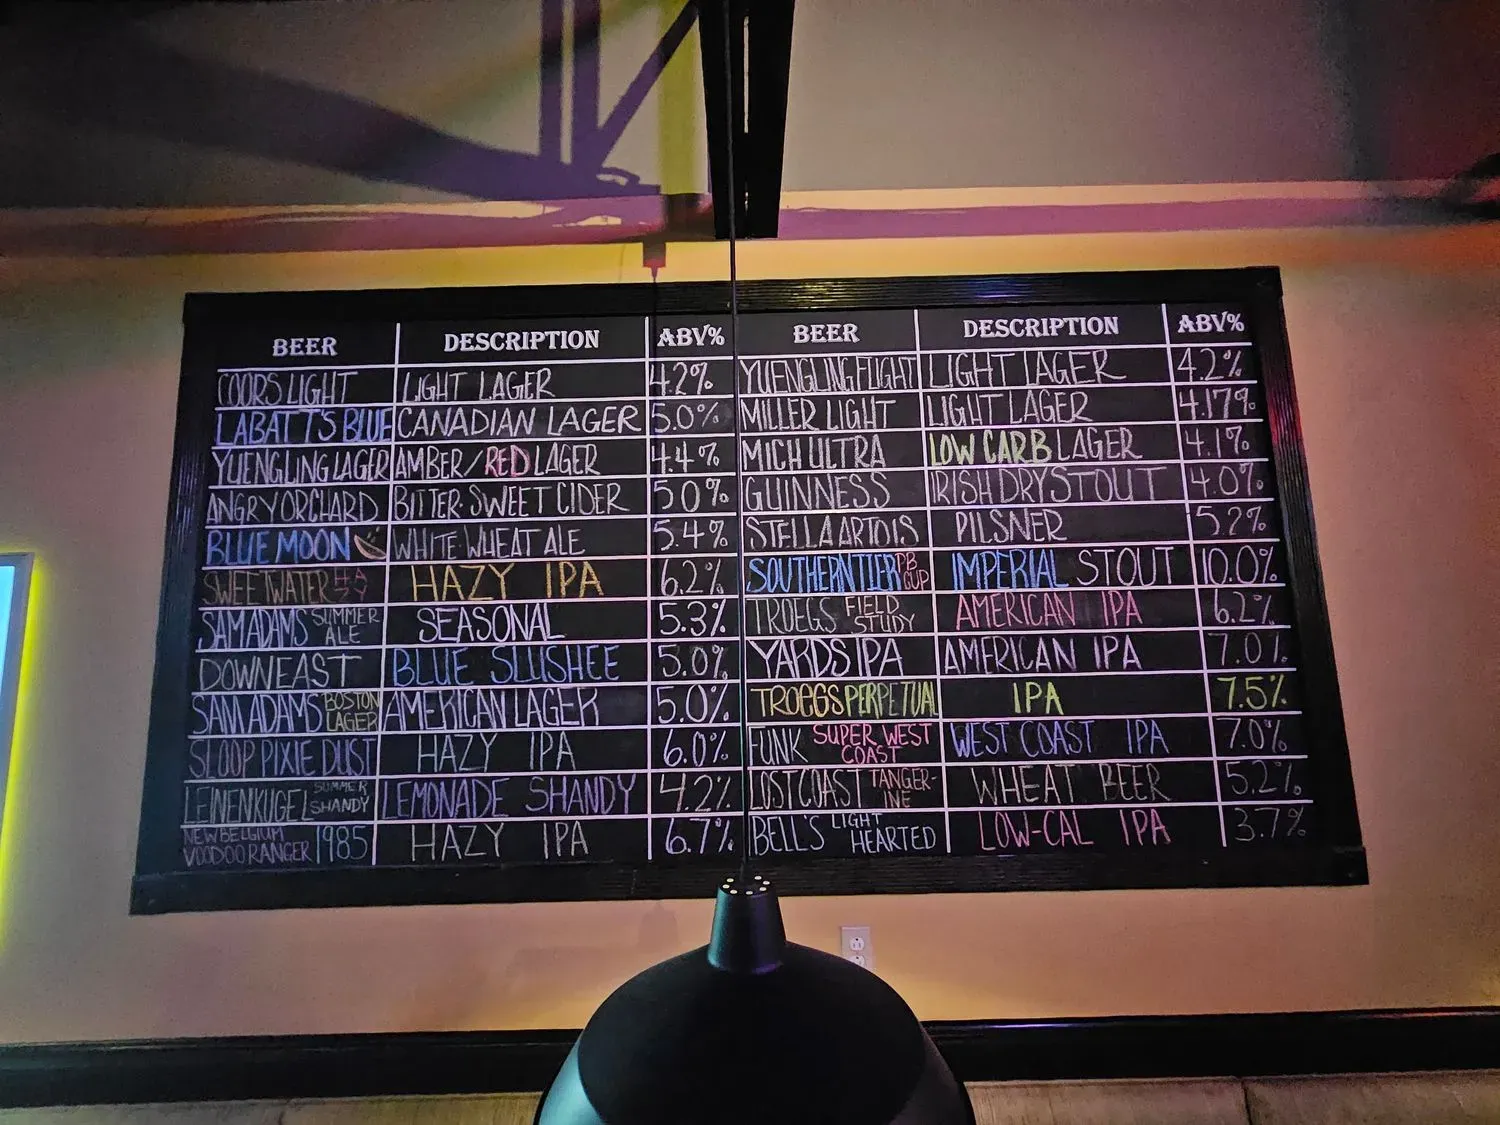 BEER DESCRIPTION ABV% BEER DESCRIPTION ABV%
COORS LIGHT LIGHT LAGER 4.2% YUENGLING FLIGHT LIGHT LAGER 4.2%
LABATT'S BLUE CANADIAN LAGER 5.0% MILLER LIGHT LIGHT LAGER 4.17%
YUENGLING LAGER AMBER/RED LAGER 4.4% MICH ULTRA LOW CARB LAGER 4.1%
ANGRY ORCHARD BITTER-SWEET CIDER 5.0% GUINNESS IRISH DRY STOUT 4.0%
BLUE MOON WHITE WHEAT ALE 5.4% STELLA ARTOIS PILSNER 5.2%
SWEETWATER HAZY HAZY IPA 6.2% SOUTHERN TIER PB CUP IMPERIAL STOUT 10.0%
SAM ADAMS SUMMER ALE SEASONAL 5.3% TROEGS FIELD STUDY AMERICAN IPA 6.2%
DOWNEAST BLUE SLUSHEE 5.0% YARDS IPA AMERICAN IPA 7.0%
SAM ADAMS BOSTON LAGER AMERICAN LAGER 5.0% TROEGS PERPETUAL IPA 7.5%
SLOOP PIXIE DUST HAZY IPA 6.0% FUNK SUPER WEST COAST WEST COAST IPA 7.0%
LEINENKUGEL SUMMER SHANDY LEMONADE SHANDY 4.2% LOST COAST TANGER-INE WHEAT BEER 5.2%
NEW BELGIUM VOODOO RANGER 1985 HAZY IPA 6.7% BELL'S LIGHT HEARTED LOW-CAL IPA 3.7%